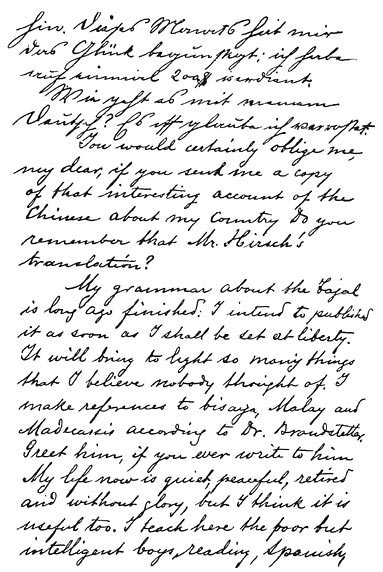 hin. Dieses Monats hat mir
das Glück begünstigt: ich habe
auf einmal 200$ verdient.
Wie geht es mit meinem
Deutsch? Es ist glaube ich verrostet.
You would certainly oblige me,
my dear, if you send me a copy
of that interesting account of the
Chinese about my Country Do you
remember that Mr. Hirsch's
translation?
My grammar about the Tagal
is long ago finished: I intend to published
it as soon as I shall be set at liberty.
It will bring to light so many things
that I believe nobody thought of. I
make references to bisaya, Malay and
Madecassis according to Dr. Brandstetter,
Greet him, if you ever write to him
My life now is quiet, peaceful, retired
and without glory, but I think it is
useful too. I teach here the poor but
intelligent boys, reading, Spanish,